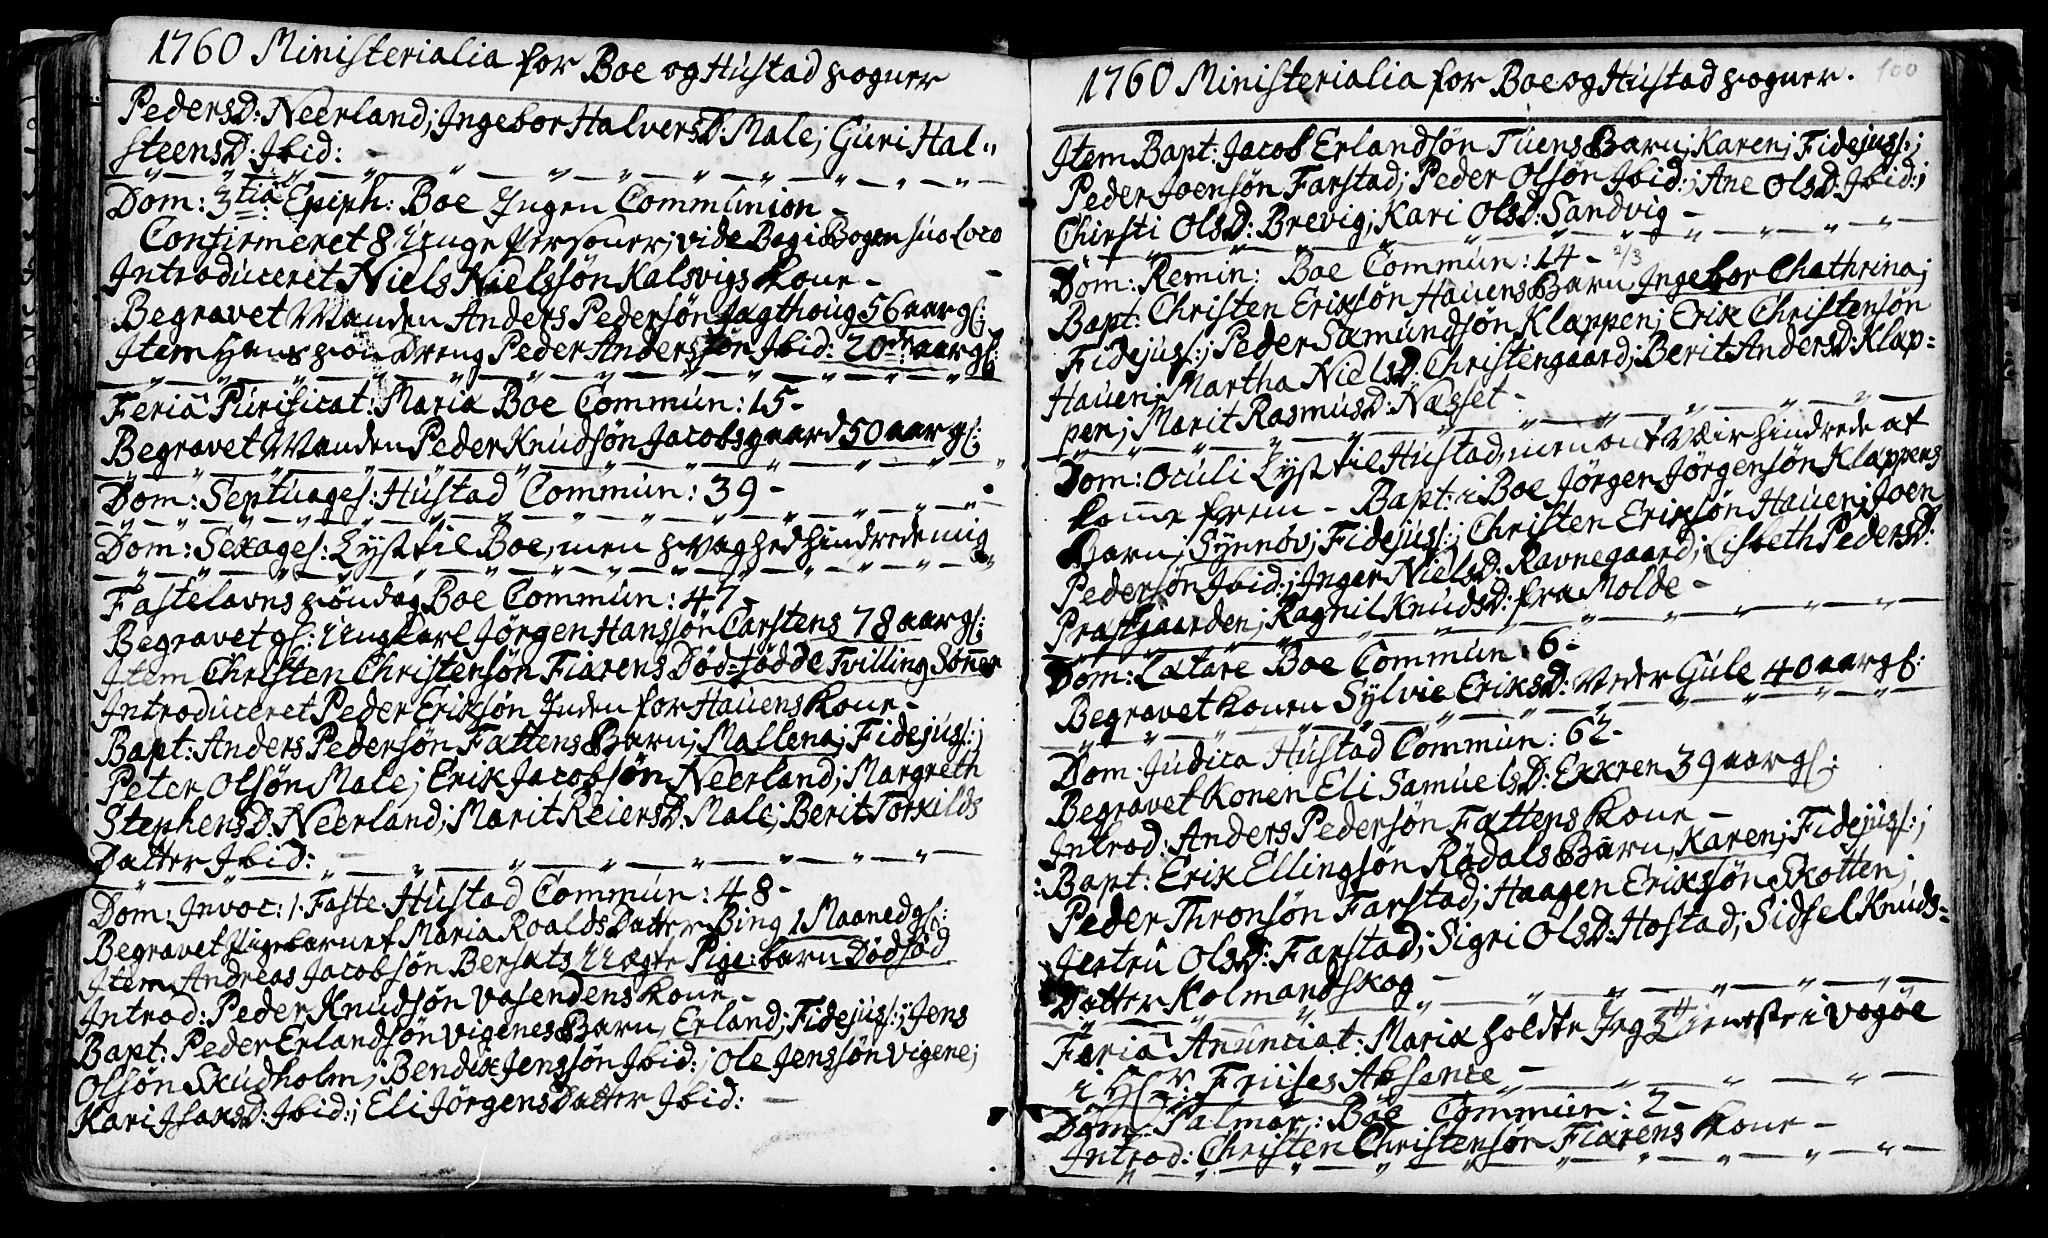 1760 Ministerialia for Boe og Hustad sogner
PedersD: Neerland; Ingebor HalversD: Male; Guri Hal"
steensD: Ibid: -
Dom: 3tia Epiph: Boe Ingen Communion -
Confirmeret 8 Unge Personer; vide Bag i Bogen suo Loco
Introduceret Niels Nielssøn Kalsvigs Kone -
Begravet Manden Anders Pedersøn Jagthoug 56 aar gl:
Item Hans søn Dreng Peder Anderssøn Ibid: 20de aar gl:
Feria Purificat: Mariæ Boe Commun: 15 -
Begravet Manden Peder Knudsøn Jacobsgaard 50 aar gl:
Dom: Septuages: Hustad Commun: 39 -
Dom: Sexages: Lyst til Boe, men svaghed hindrede mig
Fastelavns søndag Boe Commun: 47 -
Begravet gl: Ungkarl Jørgen Hanssøn Carstens 78 aar gl:
Item Christen Christensøn Fiærens Død-fødde Tvilling Sønner
Introduceret Peder Eriksøn Inden for Hauens Kone -
Bapt: Anders Pedersøn Fattens Barn; Mallena; Fidejuss:;
Peter Olsøn Male; Erik Jacobsøn Neerland; Margreth
StephensD: Neerland; Marit ReiersD: Male; Berit Torkilds
Datter Ibid: -
Dom: Invoc: 1. Faste Hustad Commun: 48 -
Begravet Pigebarnet Maria Roalds Datter Bing 1 Maaned gl:
Item Andreas Jacobsøn Bersæts Uægte Pige-barn Dødfød
Introd: Peder Knudsøn Vasendens Kone -
Bapt: Peder Erlandsøn Vigenes Barn, Erland; Fidejuss:; Jens
Olsøn Skudholm; Bendix Jenssøn Ibid:; Ole Jenssøn Vigene;
Kari IsaksD: Ibid:; Eli Jørgens Datter Ibid: -
1760 Ministerialia for Boe og Hustad sogner. 100
Item Bapt: Jacob Erlandsøn Tuens Barn; Karen; Fidejuss:;
Peder Joensøn Farstad; Peder Olsøn Ibid:; Ane OlsD: Ibid:;
Chirsti OlsD: Brevig; Kari OlsD: Sandvig -
Dom: Remin: Boe Commun: 14 - 2/3
Bapt: Christen Eriksøn Hauens Barn Ingebor Chathrina;
Fidejuss:; Peder Sæmundsøn Klappen; Erik Christensøn
Hauen; Martha NielsD: Christengaard; Berit AndersD: Klap-
pen; Marit RasmusD: Næsset -
Dom: Oculi Lyst til Hustad, men ont Vær hindrede at
komme frem - Bapt: i Boe Jørgen Jørgensøn Klappens
Barn; Synnøv; Fidejuss:; Christen Eriksøn Hauen; Joen
Pedersøn Ibid:; Inger NielsD: Ravnegaard; Lisbeth PedersD:
Præstgaarden; Ragnil KnudsD: fra Molde -
Dom: Lætare Boe Commun: 6 -
Begravet Konen Sylvie EriksD: Neder Gule 40 aar gl:
Dom: Judica Hustad Commun: 62 -
Begravet Konen Eli SamuelsD: Exkren 39 aar gl:
Introd: Anders Pedersøn Fattens Kone -
Bapt: Erik Ellingsøn Rødals Barn, Karen; Fidejuss:;
Peder Thronsøn Farstad; Haagen Erikssøn Skotten;
Jertru OlsD: Farstad; Sigri OlsD: Hostad; Sidsel Knuds-
Datter Kolmandskog -
Feria Anunciat: Mariæ holdte Jeg Tieneste i Vogøe
i Hr: Friises Absence -
Dom: Palmar: Boe Commun: 2 -
Introd: Christen Christensøn Fiærens Kone -